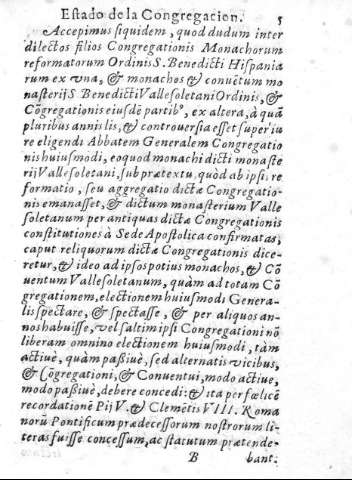 Estado de la Congregacion. 5
Accepimus siquidem, quod dudum inter
dilectos filios Congregationis Monachorum
reformatorum Ordinis S. Benedicti Hispania
rum ex vna, & monachos & conuētum mo
nasterij S Benedicti Vallesoletani Ordinis, &
Cōgregationis eiusdē partib⁹, ex altera, à quā
pluribus annis lis, & controuersia esset super iu
re eligendi Abbatem Generalem Congregatio
nis huiusmodi, eo quod monachi dicti monaste
rij Vallesoletani, sub prætextu, quòd ab ipsi: re
formatio, seu aggregatio dictæ Congregatio-
nis emanasset, & dictum monasterium Valle
soletanum per antiquas dictæ Congregationis
constitutiones à Sede Apostolica confirmatas,
caput reliquorum dictæ Congregationis dice-
retur, & ideo ad ipsos potius monachos, & Cō
uentum Vallesoletanum, quàm ad totam Cō
gregationem, electionem huiusmodi Genera-
lis spectare, & spectasse, & per aliquos an-
nos habuisse, vel saltim ipsi Congregationi nō
liberam omnino electionem huiusmodi, tàm
actiuè, quàm paßiuè, sed alternatis vicibus,
& Cōgregationi, & Conuentui, modo actiue,
modo paßiuè, debere concedi: & ita per fœlicē
recordationē Pij V. & Clemētis VIII. Roma
norū Pontificum prædecessorum nostrorum li-
teras fuisse concessum, ac statutum prætende-
B bant: